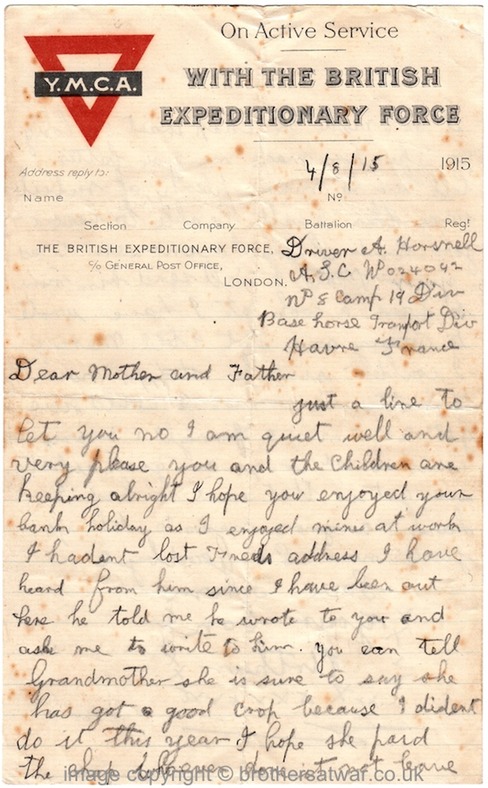 On Active Service
WITH THE BRITISH
EXPEDITIONARY FORCE
Y.M.C.A.
4/8/15 1915
Address reply to:
Name No
Section Company Battalion Regt
THE BRITISH EXPEDITIONARY FORCE,
C/o GENERAL POST OFFICE,
LONDON.
Driver A. Horsnell
A.S.C No 024042
No 8 Camp 19 Div
Base horse Tranport Div
Havre France
Dear Mother and Father
just a line to
let you no I am quiet well and
very please you and the children are
keeping alright I hope you enjoyed your
bank holiday as I enjoyed mines at work
I hadent lost address I have
heard from him since I have been out
here he told me he wrote to you and
ask me to write to him. you can tell
Grandmother she is sure to say she
has got a good crop because I dident
do it this year I hope she paid
the chap do it not leave
image copyright © brothersatwar.co.uk